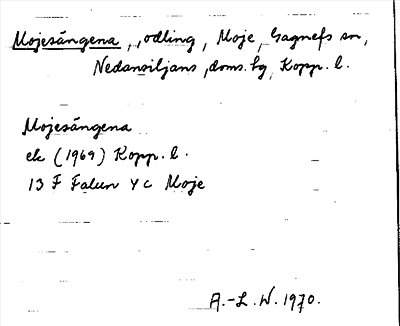 Mojesängena, odling, Moje, Gagnefs sn,
Nedansiljans doms. hg, Kopp. l.
Mojesängena
ek (1969) Kopp. l.
13 F Falun Y c Moje
A.-L. W. 1970.